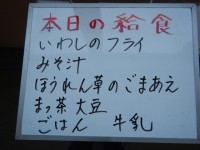 本日の給食
いわしのフライ
みそ汁
ほうれん草のごまあえ
まっ茶大豆
ごはん 牛乳